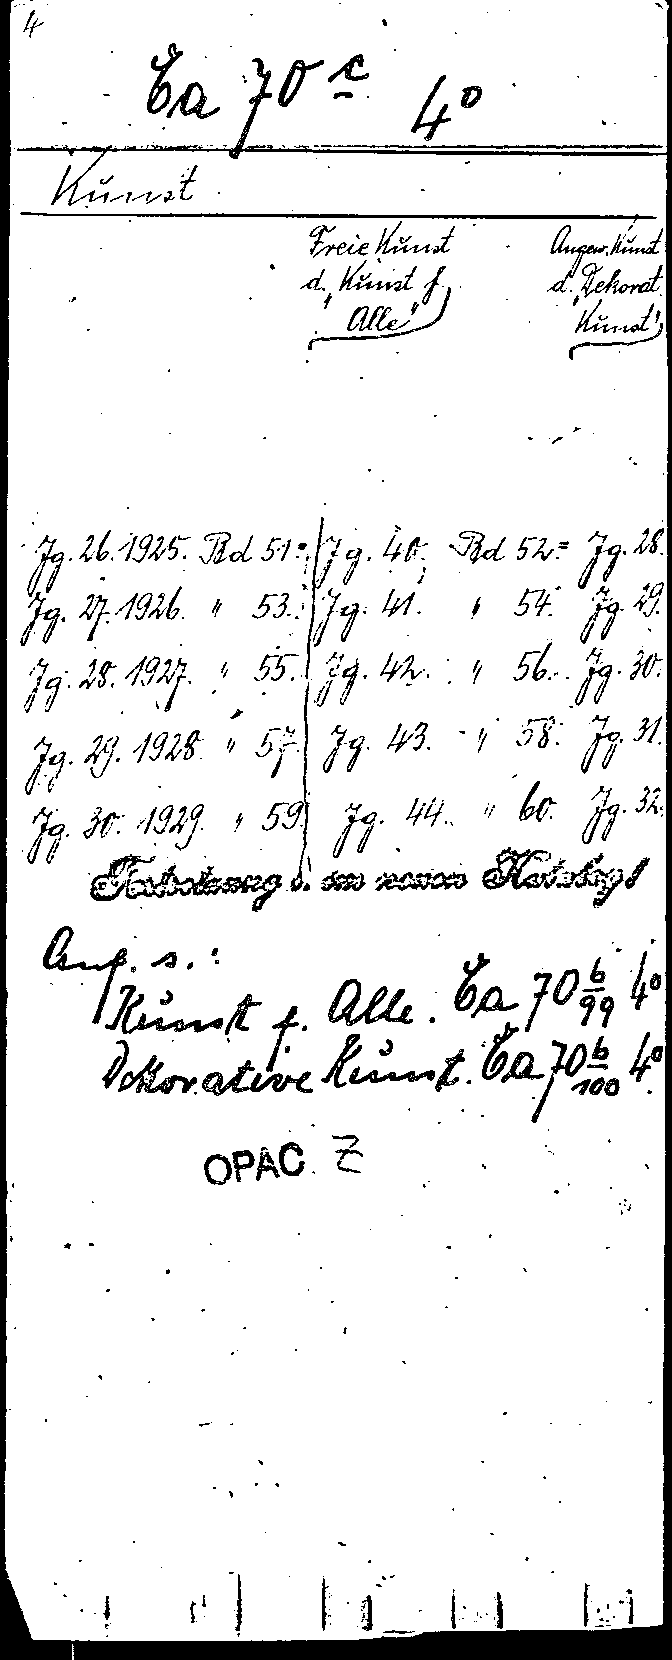 4
Ea 70 c 4º
Kunst
Freie Kunst
d. „Kunst f.
Alle"
Angew. Kunst
d. „Dekorat.
Kunst"
Jg. 26. 1925. Bd 51 = Jg. 40. Bd 52 = Jg. 28.
Jg. 27. 1926. " 53. Jg. 41. " 54. Jg. 29.
Jg. 28. 1927. " 55. Jg. 42. " 56. Jg. 30.
Jg. 29. 1928. " 57. Jg. 43. " 58. Jg. 31.
Jg. 30. 1929. " 59. Jg. 44. " 60. Jg. 32.
s.:
Kunst f. Alle. Ea 70 b/99 4º
Dekorative Kunst. Ea 70 b/100 4º
OPAC Z